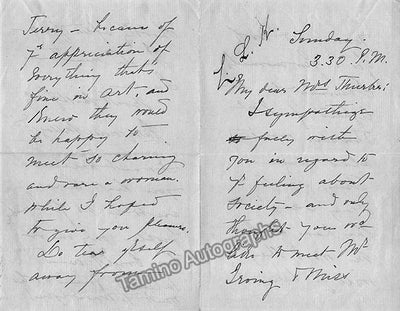 Sunday.
3.30 P.M.
My dear Mrs Thurber:
I sympathize
fully with
you in regard to
yr feeling about
Society - and only
thought you wd
like to meet Mr
Irving & Miss
Terry - because of
yr appreciation of
everything that's
fine in art; and
knew they would
be happy to
meet so charming
and rare a woman.
while I hoped
to give you pleasure.
Do tear yrself
away from
Tamino Autographs